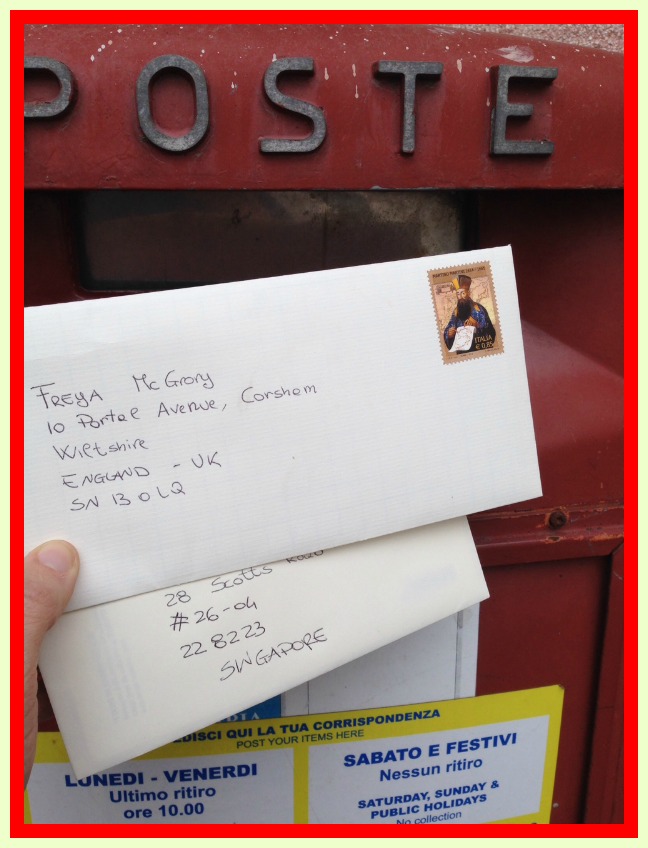 POSTE
ITALIA
€ 0,85
FREYA McGrory
10 Portal Avenue, Corsham
Wiltshire
ENGLAND - UK
SN 13 0LQ
28 Scotts Road
#26-04
228223
SINGAPORE
EDISCI QUI LA TUA CORRISPONDENZA
POST YOUR ITEMS HERE
LUNEDI - VENERDI
Ultimo ritiro
ore 10.00
SABATO E FESTIVI
Nessun ritiro
SATURDAY, SUNDAY &
PUBLIC HOLIDAYS
No collection